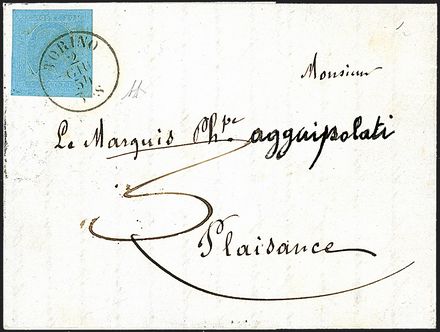 TORINO
2
GIU
54
Monsieur
Le Marquis Phpe agguipolati
3
Plaisance